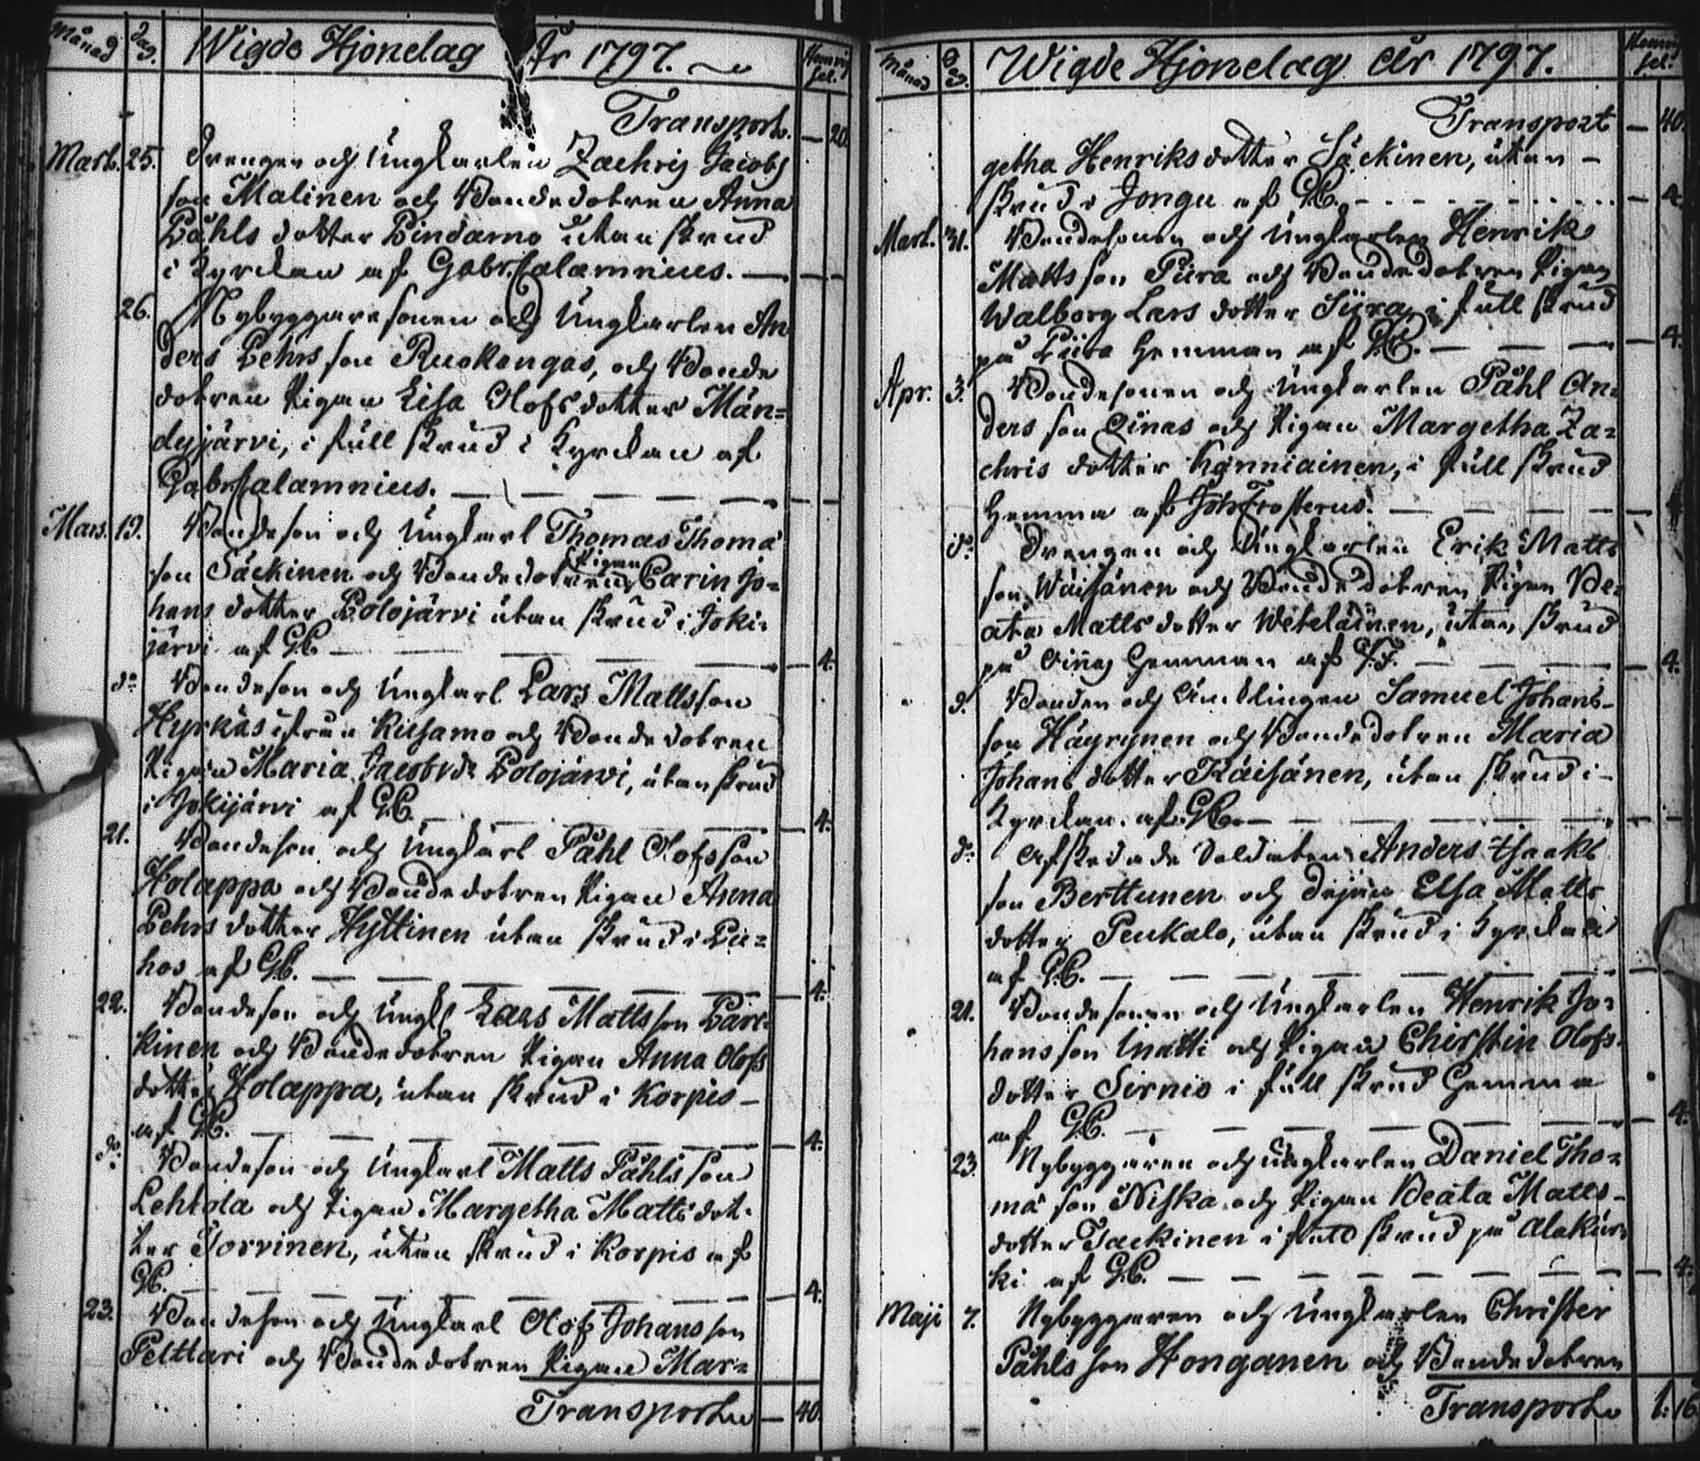 Månad Dag. Wigde Hjonelag År 1797.
Transport. — 20.
Mart. 25. Drengen och Ungkarlen Zachris Jacobs
son Malinen och Bondedotren Anna
Påhls dotter Pindamo utan skrud
i Kyrckan af Gabr. Calamnius. — — —
26. Nybyggaresonen och Ungkarlen An
ders Pehrs son Ruokangas, och Bonde
dotren Pigan Lisa Olofsdotter Män=
dyjärvi, i full skrud i Kyrckan af
Gabr. Calamnius. — — — —
Mars. 19. Bondeson och Ungkarl Thomas Thomæ
son Säckinen och Bondedotren Pigan Carin Jo=
hans dotter Polojärvi utan skrud i Joki=
järvi af G.C. — — — 4.
do Bondeson och Ungkarl Lars Mattsson
Hyrkäs ifrån Kusamo och Bondedotren
Pigan Maria Jacobs dr Polojärvi, utan skrud
i Jokijärvi af G.C. — — — 4.
21. Bondeson och Ungkarl Påhl Olofsson
Holappa och Bondedotren Pigan Anna
Pehrs dotter Hyttinen utan skrud i Pu=
hos af G.C. — — — 4.
22. Bondeson och Ungk. Lars Matts son Pärc=
kinen och Bondedotren Pigan Anna Olofs
dotter Holappa, utan skrud i Korpis —
af G.C. — — — 4.
do Bondeson och Ungkarl Matts Påhls son
Lehtola och Pigan Margetha Matts dot=
ter Torvinen, utan skrud i Korpis af
G.C. — — — 4.
23. Bondeson och Ungkarl Olof Johansson
Pelttari och Bondedotren Pigan Mar=
Transport — 40.
Månad Wigde Hjonelag År 1797.
Transport — 40.
getha Henriksdotter Säckinen, utan —
skrud i Jongu af G.C. — 4.
Mart. 31. Bondesonen och Ungkarlen Henrik
Matts son Piira och Bondedotren Pigan
Walborg Lars dotter Siira, i full skrud
på Piira Hemman af G.C. — — — 4.
Apr. 3. Bondesonen och Ungkarlen Påhl An=
ders son Oinas och Pigan Margetha Za=
chris dotter Känniainen, i full skrud
Hemma af Joh. Frosterus. — — — 4
do Drengen och Ungkarlen Erik Matts
son Wäisänen och Bondedotren Pigan Be=
ata Matts dotter Weteläinen, utan skrud
på Oinas Hemman af J.F. — — — 4.
d. Bonden och Encklingen Samuel Johans=
son Häyrynen och Bondedotren Maria
Johans dotter Räisänen, utan skrud i —
Kyrckan af G.C. — — —
do Afskedade Soldaten Anders Isaaks
son Berttunen och Dejan Elsa Matts
dotter Peukalo, utan skrud i Kyrckan
af G.C. — — —
21. Bondesonen och Ungkarlen Henrik Jo=
hans son Inatti och Pigan Chirstin Olofs=
dotter Sirnio i full skrud Hemma
af G.C. — — — 4.
23. Nybyggaren och Ungkarlen Daniel Tho=
mæ son Niska och Pigan Beata Matts=
dotter Tackinen i full skrud på Alakur=
ki af G.C. — — — 4.
Maji 7. Nybyggaren och Ungkarlen Christer
Påhls son Honganen och Bondedotren
Transport 1: 16